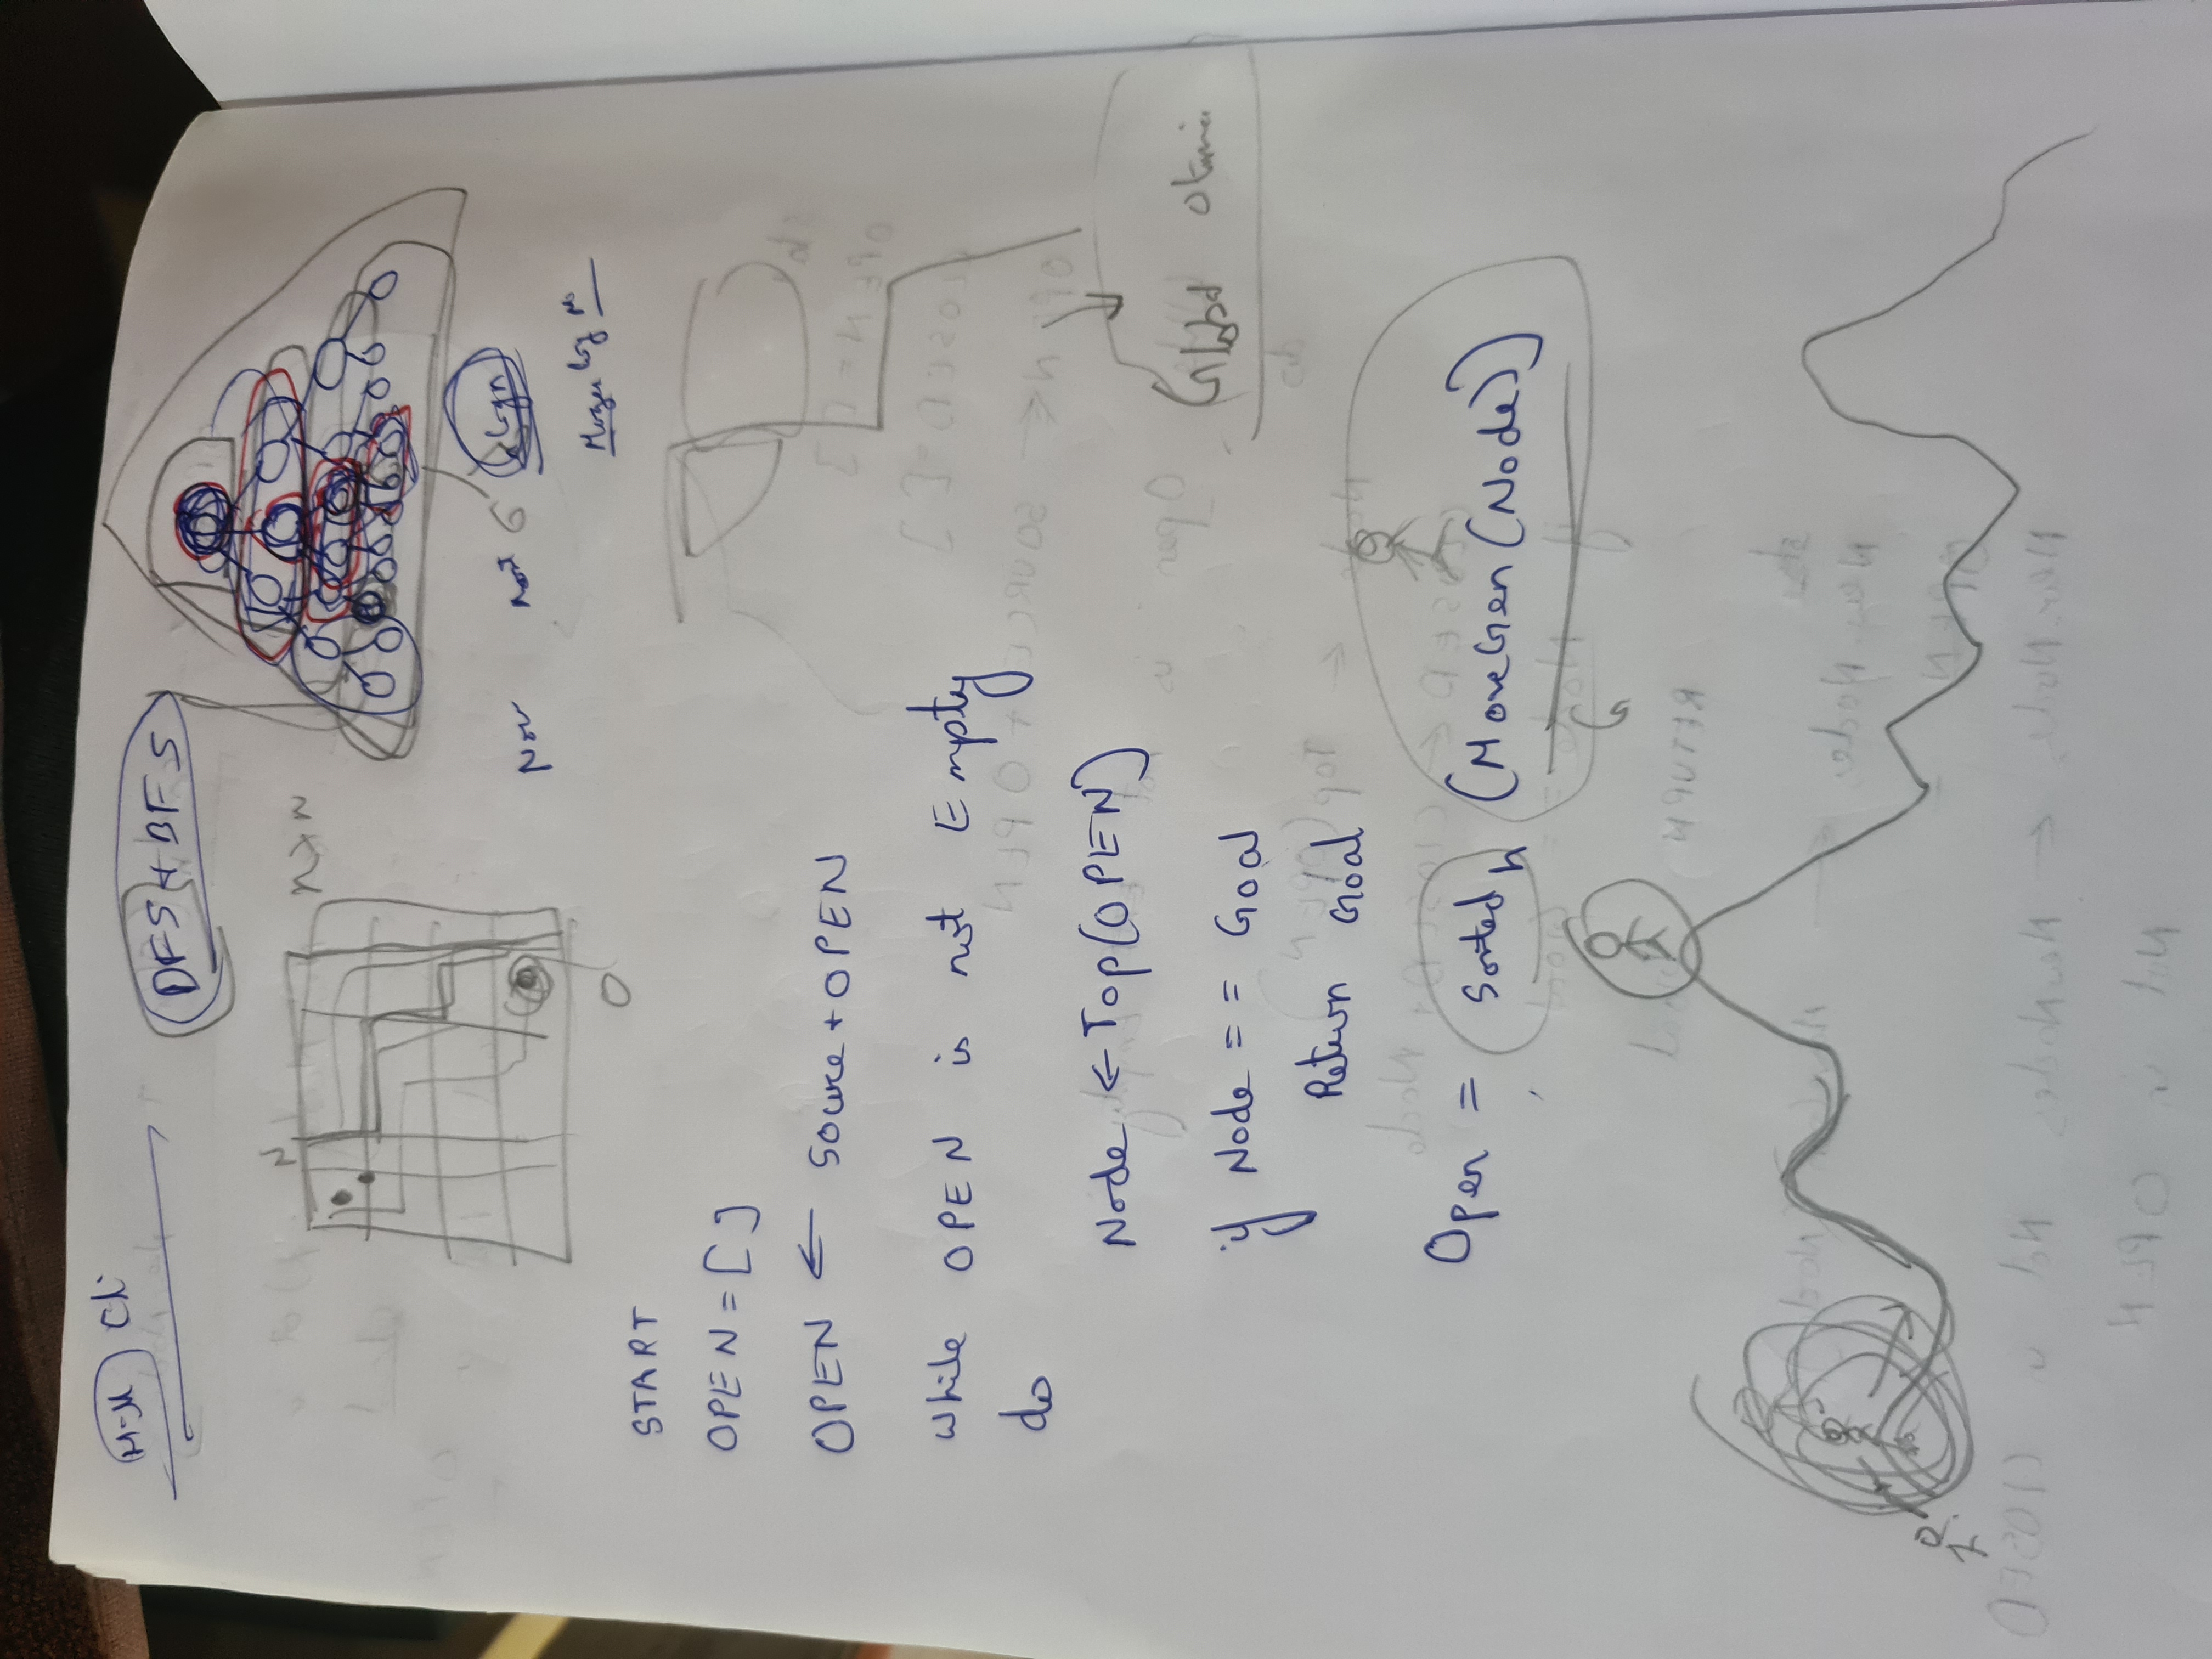 Cli
DFS + BFS
N
n x n
Now
G
log n
Merge log n
START
OPEN = [ ]
OPEN ← Source + OPEN
while OPEN is not Empty
do
Node ← Top(OPEN)
if Node == Goal
Return Goal
Global
Open = Sorted h (MoveGen(Node))